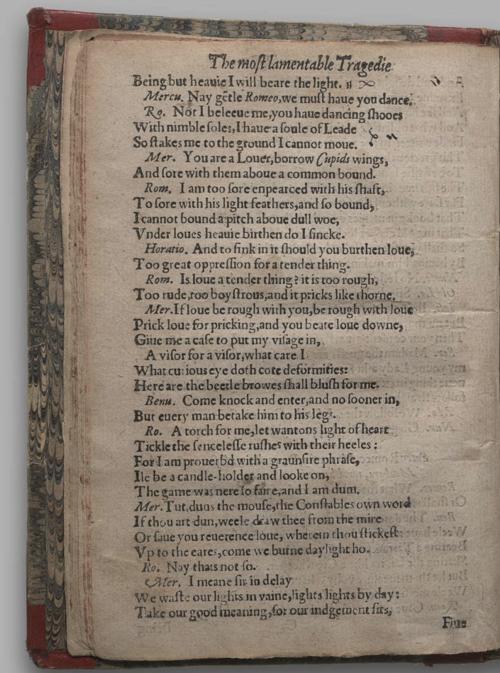 The moſt lamentable Tragedie
Being but heauie I will beare the light.
Mercu. Nay gẽtle Romeo, we muſt haue you dance,
Ro. Not I beleeue me, you haue dancing ſhooes
With nimble ſoles, I haue a ſoule of Leade
So ſtakes me to the ground I cannot moue.
Mer. You are a Louer, borrow Cupids wings,
And ſore with them aboue a common bound.
Rom. I am too ſore enpearced with his ſhaft,
To ſore with his light feathers, and ſo bound,
I cannot bound a pitch aboue dull woe,
Vnder loues heauie birthen do I ſincke.
Horatio. And to ſink in it ſhould you burthen loue,
Too great oppreſſion for a tender thing.
Rom. Is loue a tender thing? it is too rough,
Too rude, too boyſtrous, and it pricks like thorne.
Mer. If loue be rough with you, be rough with loue
Prick loue for pricking, and you beate loue downe,
Giue me a caſe to put my viſage in,
A viſor for a viſor, what care I
What curious eye doth cote deformities:
Here are the beetle browes ſhall bluſh for me.
Benu. Come knock and enter, and no ſooner in,
But euery man betake him to his legs.
Ro. A torch for me, let wantons light of heart
Tickle the ſenceleſſe ruſhes with their heeles:
For I am prouerbd with a graunſire phraſe,
Ile be a candle-holder and looke on,
The game was nere ſo faire, and I am dum.
Mer. Tut, duns the mouſe, the Conſtables own word
If thou art dun, weele draw thee from the mire
Or ſaue you reuerence loue, wherein thou ſtickeſt
Vp to the eares, come we burne daylight ho.
Ro. Nay thats not ſo.
Mer. I meane ſir in delay
We waſte our lights in vaine, lights lights by day:
Take our good meaning, for our indgement ſits,
Fiue